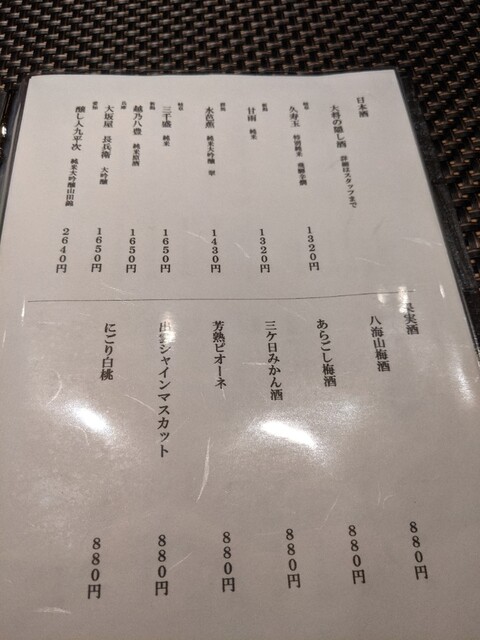 日本酒
大将の隠し酒 詳細はスタッフまで
岐阜
久寿玉 特別純米 飛騨辛潤 1320円
新潟
甘雨 純米 1320円
水芭蕉 純米大吟醸 翠 1430円
岐阜
三千盛 純米 1650円
新潟
越乃八豊 純米原酒 1650円
兵庫
大坂屋 長兵衛 大吟醸 1650円
愛知
醸し人九平次 純米大吟醸山田錦 2640円
果実酒
八海山梅酒 880円
あらごし梅酒 880円
三ケ日みかん酒 880円
芳熟ピオーネ 880円
出雲シャインマスカット 880円
にごり白桃 880円